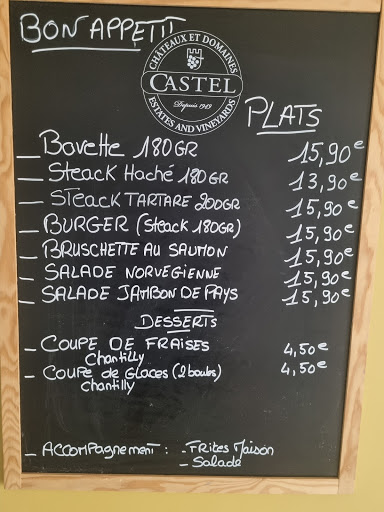 BON APPETIT
CHÂTEAUX ET DOMAINES
CASTEL
Depuis 1949
ESTATES AND VINEYARDS
PLATS
_ Bavette 180GR 15,90€
_ Steack Haché 180GR 13,90€
_ STeack TARTARE 200GR 15,90€
_ BURGER (Steack 180GR) 15,90€
_ BRUSCHETTE AU SAUMON 15,90€
_ SALADE NORVEGIENNE 15,90€
_ SALADE JAMBON DE PAYS 15,90€
DESSERTS
_ COUPE DE FRAISES 4,50€
Chantilly
_ COUPE de GLACES (2 boules) 4,50€
Chantilly
_ ACCOMPAGNEMENT : - FRITES MAISON
- SALADE